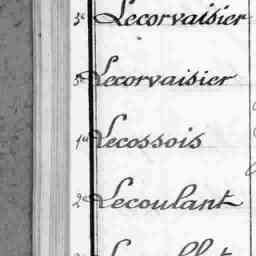 3e Lecorvaisier
5e Lecorvaisier
1er Lecossois
2e Lecoulant